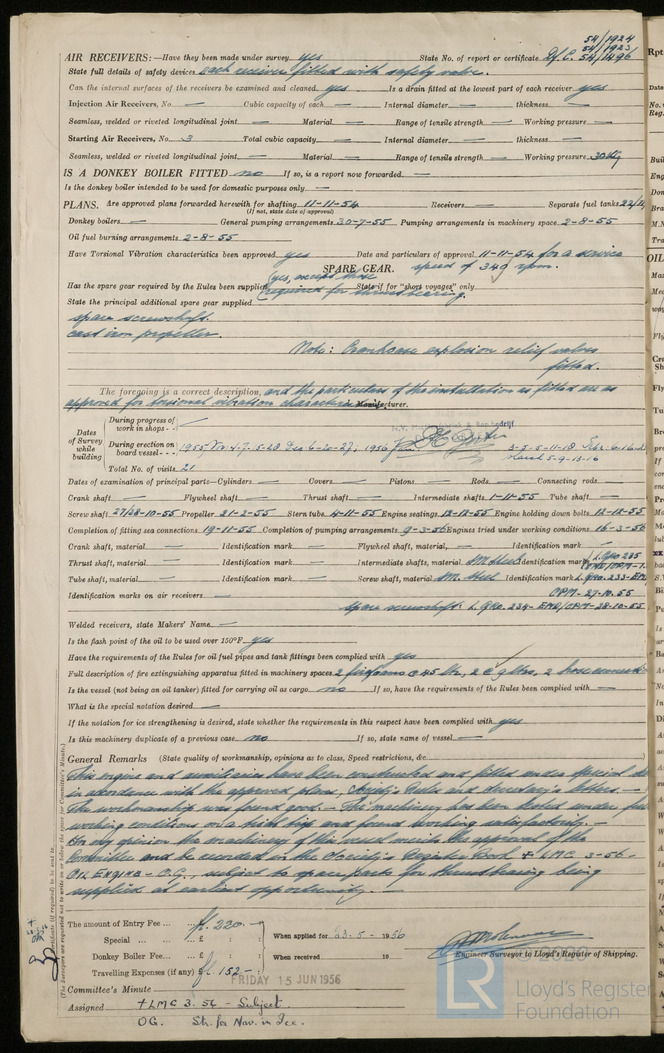 54/1924
54/1923
AIR RECEIVERS:—Have they been made under survey yes State No. of report or certificate 54/1496
State full details of safety devices each receiver fitted with safety valve.
Can the internal surfaces of the receivers be examined and cleaned yes Is a drain fitted at the lowest part of each receiver yes
Injection Air Receivers, No. — Cubic capacity of each — Internal diameter — thickness —
Seamless, welded or riveted longitudinal joint — Material — Range of tensile strength — Working pressure —
Starting Air Receivers, No. 3 Total cubic capacity — Internal diameter — thickness —
Seamless, welded or riveted longitudinal joint — Material — Range of tensile strength — Working pressure 30
IS A DONKEY BOILER FITTED no If so, is a report now forwarded —
Is the donkey boiler intended to be used for domestic purposes only —
PLANS. Are approved plans forwarded herewith for shafting 11-11-54 Receivers — Separate fuel tanks
(If not, state date of approval)
Donkey boilers — General pumping arrangements 30-7-55 Pumping arrangements in machinery space 2-8-55
Oil fuel burning arrangements 2-8-55
Have Torsional Vibration characteristics been approved yes Date and particulars of approval 11-11-54 for a service
SPARE GEAR. speed of 340 rpm.
Has the spare gear required by the Rules been supplied (yes, except those State if for "short voyages" only
required for thrustbearing.
State the principal additional spare gear supplied
spare screwshaft.
cast iron propeller.
Note: Crankcase explosion relief valves
fitted.
The foregoing is a correct description, and the particulars of the installation as fitted are as
approved for torsional vibration characteristics. Manufacturer.
Dates of Survey while building
During progress of work in shops - -
During erection on board vessel - - -
1955 Nov 4-7-5-28 Dec 6-20-27; 1956 Jan.
March 5-9-13-16
Total No. of visits 21
Dates of examination of principal parts—Cylinders — Covers — Pistons — Rods — Connecting rods —
Crank shaft — Flywheel shaft — Thrust shaft — Intermediate shafts 1-11-55 Tube shaft —
Screw shaft 27/28-10-55 Propeller 21-2-55 Stern tube 4-11-55 Engine seatings 12-12-55 Engine holding down bolts 12-12-55
Completion of fitting sea connections 19-11-55 Completion of pumping arrangements 9-3-56 Engines tried under working conditions 16-3-56
Crank shaft, material — Identification mark — Flywheel shaft, material, — Identification mark —
Thrust shaft, material — Identification mark — Intermediate shafts, material M. Steel Identification mark L. GRO. 235
Tube shaft, material — Identification mark — Screw shaft, material M. Steel Identification mark L. GRO. 233-EMB
OPM-27-10.55
Identification marks on air receivers —
spare screwshaft: L. GRO. 234- EMB/OPM-28-10-55
Welded receivers, state Makers' Name —
Is the flash point of the oil to be used over 150°F. yes
Have the requirements of the Rules for oil fuel pipes and tank fittings been complied with yes
Full description of fire extinguishing apparatus fitted in machinery spaces 2 c 45 ltr, 2 c 9 ltrs, 2 hose
Is the vessel (not being an oil tanker) fitted for carrying oil as cargo no If so, have the requirements of the Rules been complied with —
What is the special notation desired —
If the notation for ice strengthening is desired, state whether the requirements in this respect have been complied with yes
Is this machinery duplicate of a previous case no If so, state name of vessel —
General Remarks (State quality of workmanship, opinions as to class, Speed restrictions, &c.
This engine and auxiliaries have been constructed and fitted under special
in accordance with the approved plans, Society's Rules and Secretary's letters. —
The workmanship was found good. — The machinery has been tested under full
working conditions on a trial trip and found working satisfactorily. —
In my opinion the machinery of this vessel merits the approval of the
Committee and be recorded in the Society's Register Book + LMC 3-56 -
Oil Engine - O.G., subject to spare parts for thrustbearing being
supplied at earliest opportunity. —
(The Surveyors are requested not to write on or below the space for Committee's Minute.)
Certificate (if required) to be sent to
The amount of Entry Fee ... fl. 220.-
Special ... ... £ : :
Donkey Boiler Fee... £ : :
Travelling Expenses (if any) fl. 152.-
When applied for 23-5- 1956
When received 19
Engineer Surveyor to Lloyd's Register of Shipping.
Committee's Minute FRIDAY 15 JUN 1956
Assigned +LMC 3.56 - Subject
OG. Str. for Nav. in Ice.
© 2020
LR
Lloyd's Register
Foundation